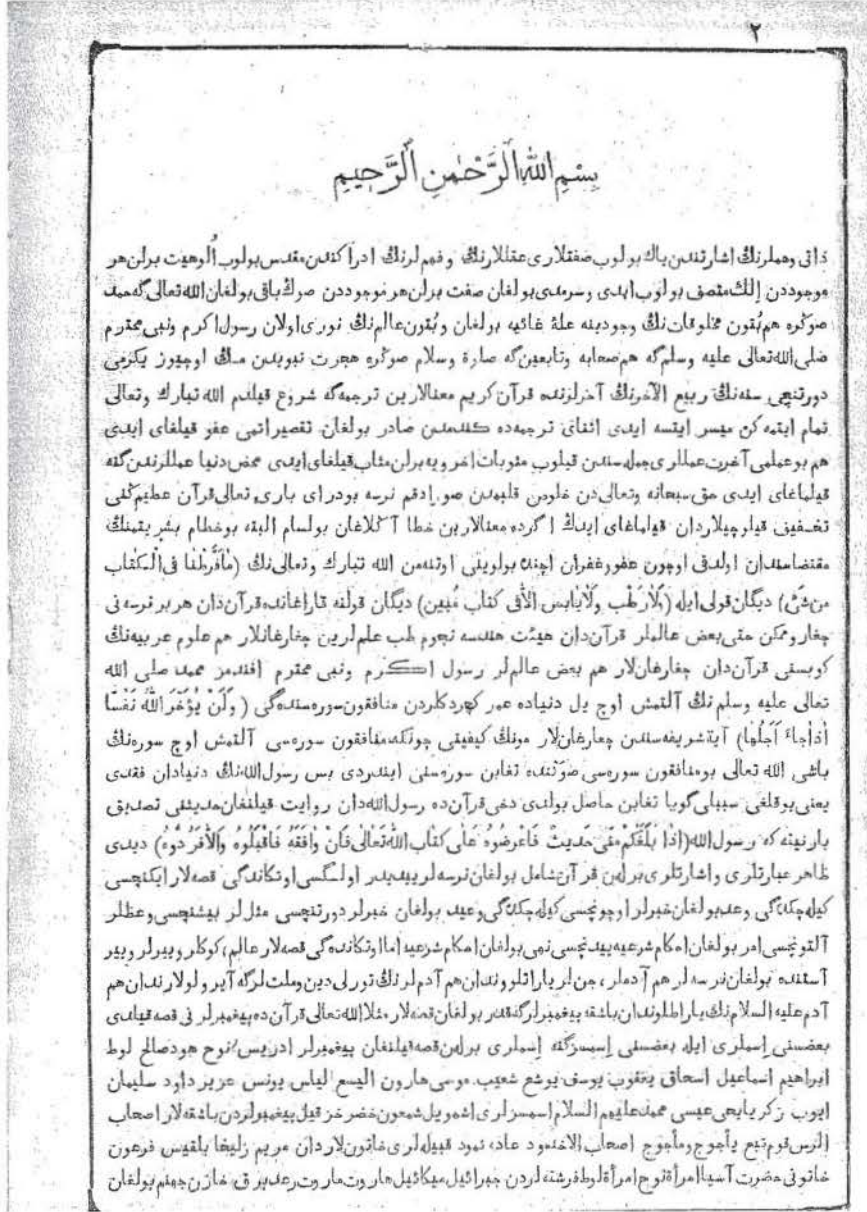 ٢
بِسْمِ اللهِ الرَّحْمٰنِ الرَّحِيمِ
ذاتى وهملرنڭ اشارتندن پاك بولوب صفتلارى عقللارنڭ و فهم لرنڭ ادراكندن مقدس بولوب اُلوهيت برلن هر
موجوددن اِلك متصف بولوب ايدى وسرمدى بولغان صفت برلن هر موجوددن صوڭ باقى بولغان الله تعالى گه حمد
صوڭره هم بُتون مخلوقات نڭ وجودينه علۀ غائيه بولغان و بُتون عالم نڭ نورى اولان رسول اكرم ونبى محترم
صلى الله تعالى عليه وسلم گه هم صحابه وتابعين گه صلوة وسلام صوڭره هجرت نبويدن مڭ اوچيوز يكرمى
دورتنچى سنه نڭ ربيع الآخرنڭ آخرلرنده قرآن كريم معنالارين ترجمه گه شروع قيلدم الله تبارك وتعالى
تمام ايتمه كن ميسر ايتسه ايدى اثناى ترجمه ده كندمدن صادر بولغان تقصيراتمى عفو قيلغاى ايدى
هم بو عملمى آخرت عمللارى جمله سندن قيلوب مثوبات اخرويه برلن مثاب قيلغاى ايدى محض دنيا عمللرندن گنه
قيلماغاى ايدى حق سبحانه وتعالى دن خلوص قلبمدن صورادقم نرسه بودر اى بارى تعالى قرآن عظيم گنى
تخفيف قيلوچيلاردان قيلماغاى ايدڭ اگرده معنالارين خطا آڭلاغان بولسام البته بو خطام بشريتمنڭ
مقتضاسندان اولدقى اوچون عفو و غفران اچنده بولوينى اوتنه من الله تبارك وتعالى نڭ (مَافَرَّطْنَا فِى الْكِتَاب
من شَىْء) ديگان قولى ايله (وَلَارَطْب وَلَايَابِس اِلَّا فى كتاب مُبين) ديگان قولنه قاراغانده قرآن دان هر بر نرسه نى
چغارو ممكن حتى بعض عالملر قرآن دان هيئت هندسه نجوم طب علم لرين چغارغانلار هم علوم عربيه نڭ
كوبسنى قرآن دان چغارغان لار هم بعض عالم لر رسول اكرم ونبى محترم افندمز محمد صلى الله
تعالى عليه وسلم نڭ آلتمش اوچ يل دنياده عمر كچردكلردن منافقون سوره سنده گى (وَلَنْ يُؤَخِّرَ اللهُ نَفْسًا
اِذَاجَاءَ اَجَلُهَا) آيۀ شريفه سندن چغارغان لار مونڭ كيفيتى چونكه منافقون سوره سى آلتمش اوچ سوره نڭ
باشى الله تعالى بو منافقون سوره سى صوڭنده تغابن سوره سنى ايندردى بس رسول الله نڭ دنيادان فقدى
يعنى يوقلغى سببلى گويا تغابن حاصل بولدى دخى قرآن ده رسول الله دان روايت قيلنغان حديثنى تصديق
بار نيته كه رسول الله (اِذَا بَلَغَكُمْ عَنِّى حَدِيثٌ فَاعْرِضُوهُ عَلَى كِتَابِ اللهِ تَعَالَى فَاِنْ وَافَقَهُ فَاقْبَلُوهُ وَاِلَّا فَرُدُّوهُ) ديدى
ظاهر عبارتلرى و اشارتلرى برلن قرآن شامل بولغان نرسه لر ييديدر اولگسى اوتكانده گى قصه لار ايكنچسى
كيله چكده گى وعد بولغان خبرلر اوچونچسى كيله چكده گى وعيد بولغان خبرلر دورتنچسى مثل لر بيشنچسى وعظلر
آلتونچسى امر بولغان احكام شرعيه ييدنچسى نهى بولغان احكام شرعيه اما اوتكانده گى قصه لار عالم، كوكلر و ييرلر و يير
آستنده بولغان نرسه لر هم آدملر، جن لر ياراتلووندان هم آدم لرنڭ تورلى دين وملت لرگه آيرولولارندان هم
آدم عليه السلام نڭ ياراطلوندان باشقه پيغمبرلرگه قدر بولغان قصه لار مثلا الله تعالى قرآن ده پيغمبرلر نى قصه قيلدى
بعضسنى اِسملرى ايله بعضسنى اِسمسزگنه اِسملرى برلن قصه قيلنغان پيغمبرلر ادريس نوح هود صالح لوط
ابراهيم اسماعيل اسحاق يعقوب يوسف يوشع شعيب موسى هارون اليسع الياس يونس عزير داود سليمان
ايوب زكريا يحيى عيسى محمد عليهم السلام اسمسزلرى اشمويل شمعون خضر حزقيل پيغمبرلردن باشقه لار اصحاب
الرس قوم تبع يأجوج ومأجوج اصحاب الاخدود عاد، ثمود قبيله لرى خاتون لاردان مريم زليخا بلقيس فرعون
خاتونى حضرت آسيا امرأة نوح امرأة لوط فرشته لردن جبرائيل ميكائيل هاروت ماروت رعد برق خازن جهنم بولغان